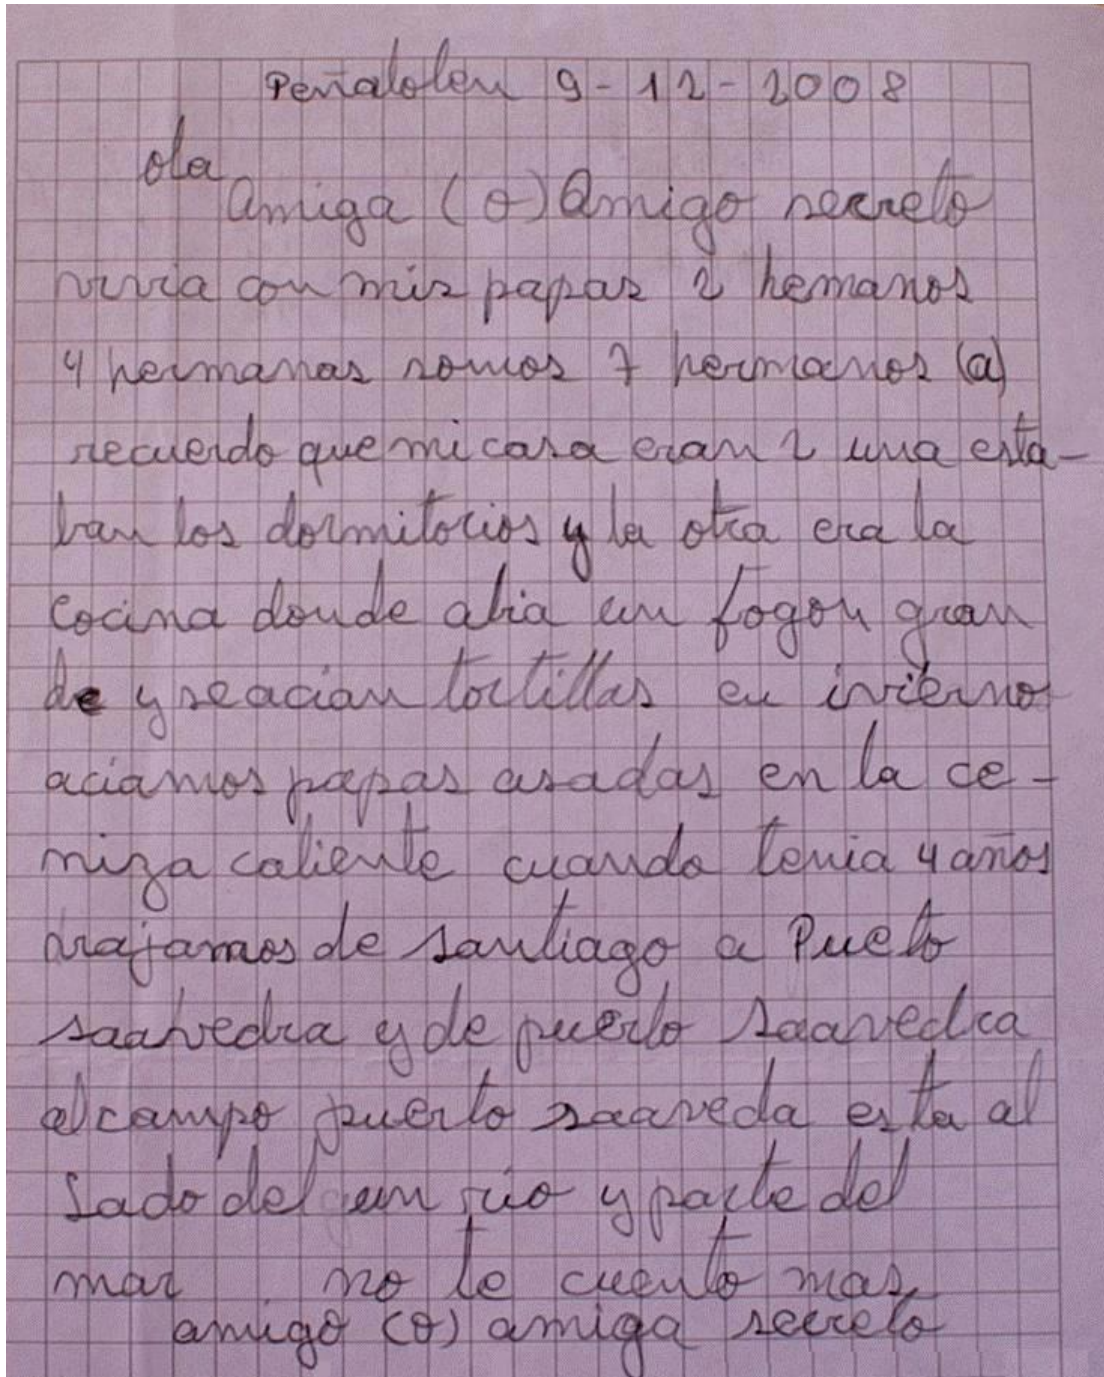 Peñalolen 9-12-2008
ola
Amiga (o) Amigo secreto
vivia con mis papas 2 hemanos
4 hermanas somos 7 hermanos (a)
recuerdo que mi casa eran 2 una esta-
ban los dormitorios y la otra era la
cocina donde abia un fogon gran
de y seacian tortillas en invierno
aciamos papas asadas en la ce-
niza caliente cuando tenia 4 años
viajamos de santiago a Pueto
saavedra y de puerto saavedra
al campo puerto saaveda esta al
lado del un rio y parte del
mar no te cuento mas
amigo (o) amiga secreto